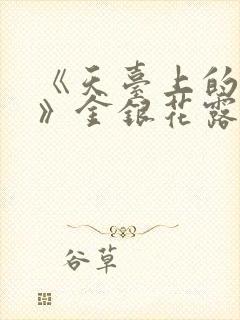 《天臺上的
》金銀花露
谷草